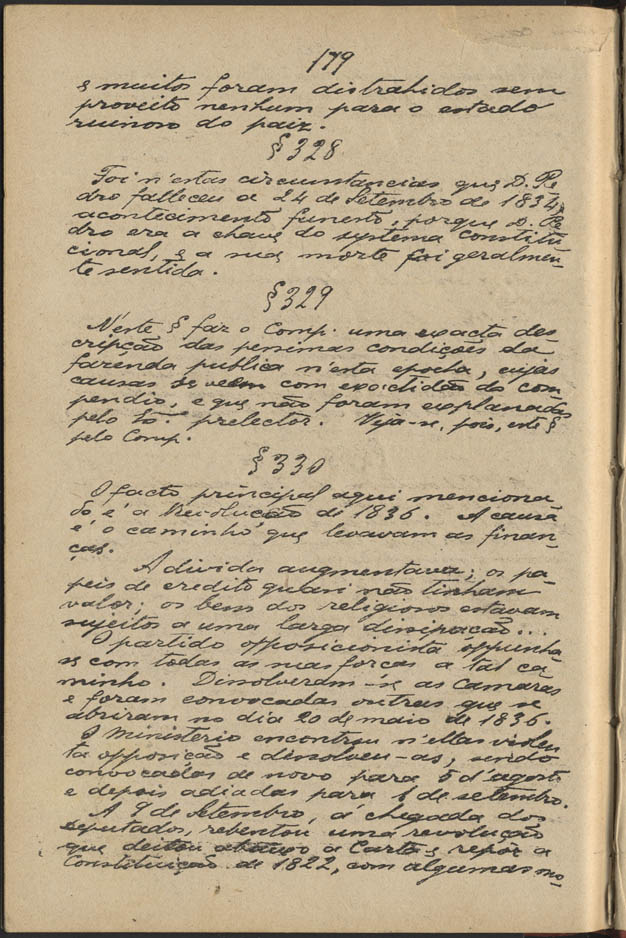 179
e muitos foram distrahidos sem
proveito nenhum para o estado
ruinoso do paiz.
§ 328
Foi n'estas circumstancias que D. Pe
dro falleceu a 24 de Setembro de 1834,
acontecimento funesto, porque D. Pe
dro era a chave do systema constitu
cional, e a sua morte foi geralmen-
te sentida.
§ 329
N'éste § faz o Comp. uma exacta des
cripção das pessimas condições da
fazenda publica n'esta epocha, cujas
causas se veem com exactidão do com
pendio, e que não foram explanadas
pelo prelector. Veja-se, pois, este §
pelo Comp.
§ 330
O facto principal aqui menciona-
do é a Revolução de 1836. A causa
é o caminho que levavam as finan-
ças.
A divida augmentava; os pa-
peis de credito quasi não tinham
valor; os bens dos religiosos estavam
sujeitos a uma larga dissipação...
O partido opposicionista oppunha
se com todas as suas forças a tal ca-
minho. Dissolveram-se as Camaras
e foram convocadas outras que se
abriram no dia 20 de maio de 1836.
O Ministerio encontrou n'ellas violen
ta opposição e dissolveu-as, sendo
convocadas de novo para 5 d'agosto
e depois adiadas para 1 de setembro.
A 9 de Setembro, á chegada dos
deputados, rebentou uma revolução
que deitou abaixo a Carta e repôz a
Constituição de 1822, com algumas mo-